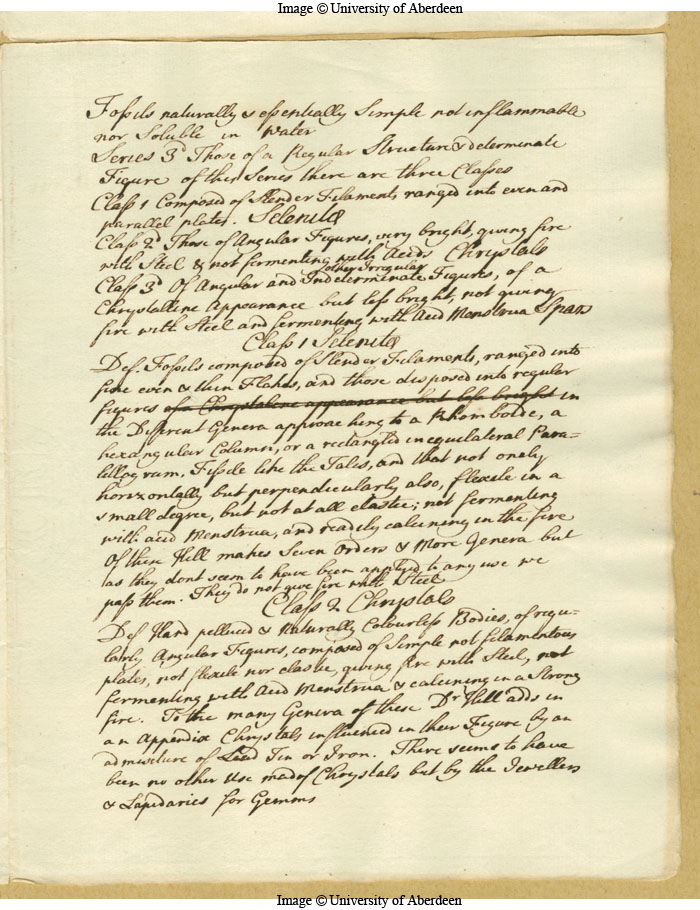 Image © University of Aberdeen
Fossils naturally & essentially Simple not inflammable
nor Soluble in Water
Series 3d Those of a Regular Structure & determinate
Figure of this Series there are three Classes
Class 1 Composed of Slender Filaments ranged into even and
parallel plates. Selenitæ
Class 2d Those of Angular Figures, very bright, giving fire
with Steel & not fermenting with Acids Chrystals
other Irregular
Class 3d Of Angular and Indeterminate Figures, of a
Chrystalline Appearance but less bright, not giving
fire with Steel and fermenting with Acid Menstrua Spars
Class 1 Selenitæ
Def. Fossils composed of Slender Filaments, ranged into
fine even & thin Flakes, and those disposed into regular
figures of a Chrystaline appearance but less bright in
the Different Genera approaching to a Rhomboide, a
hexangular Column, or a rectangled inequilateral Para-
lellogram, Fissile like the Talcs, and that not onely
horizontally but perpendicularly also, flexile in a
small degree, but not at all elastic; not fermenting
with acid Menstrua, and readily calcining in the fire
Of these Hill makes Seven Orders & More Genera but
as they dont seem to have been applied to any use we
pass them. They do not give fire with Steel
Class 2 Chrystals
Def Hard pellucid & Naturally Colourless Bodies, of regu-
larly Angular Figures, composed of Simple not filamentous
plates, not flexile nor elastic, giving fire with Steel, not
fermenting with Acid Menstrua & calcining in a Strong
fire. To the many Genera of these Dr Hill adds in
an Appendix Chrystals influenced in their Figure by an
admixture of Lead Tin or Iron. There seems to have
been no other Use made of Chrystals but by the Jewellers
& Lapidaries for Gemms
Image © University of Aberdeen